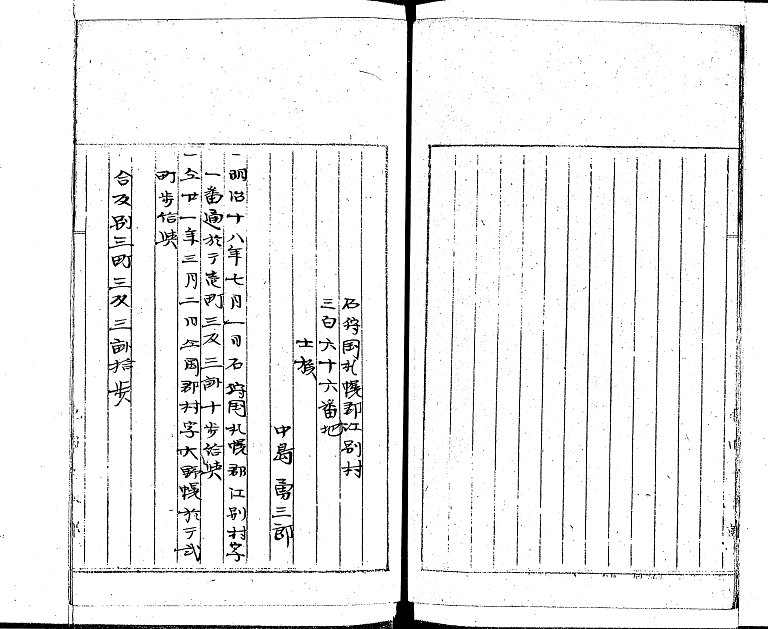 石狩国札幌郡江別村
三百六十六番地
士族
中島勇三郎
一明治十八年七月一日石狩国札幌郡江別村字
一番通於テ壱町三反三畝十歩給与
一仝廿一年三月二日仝国郡村字大野幌於テ弐
町歩給与
合反別三町三反三畝拾歩